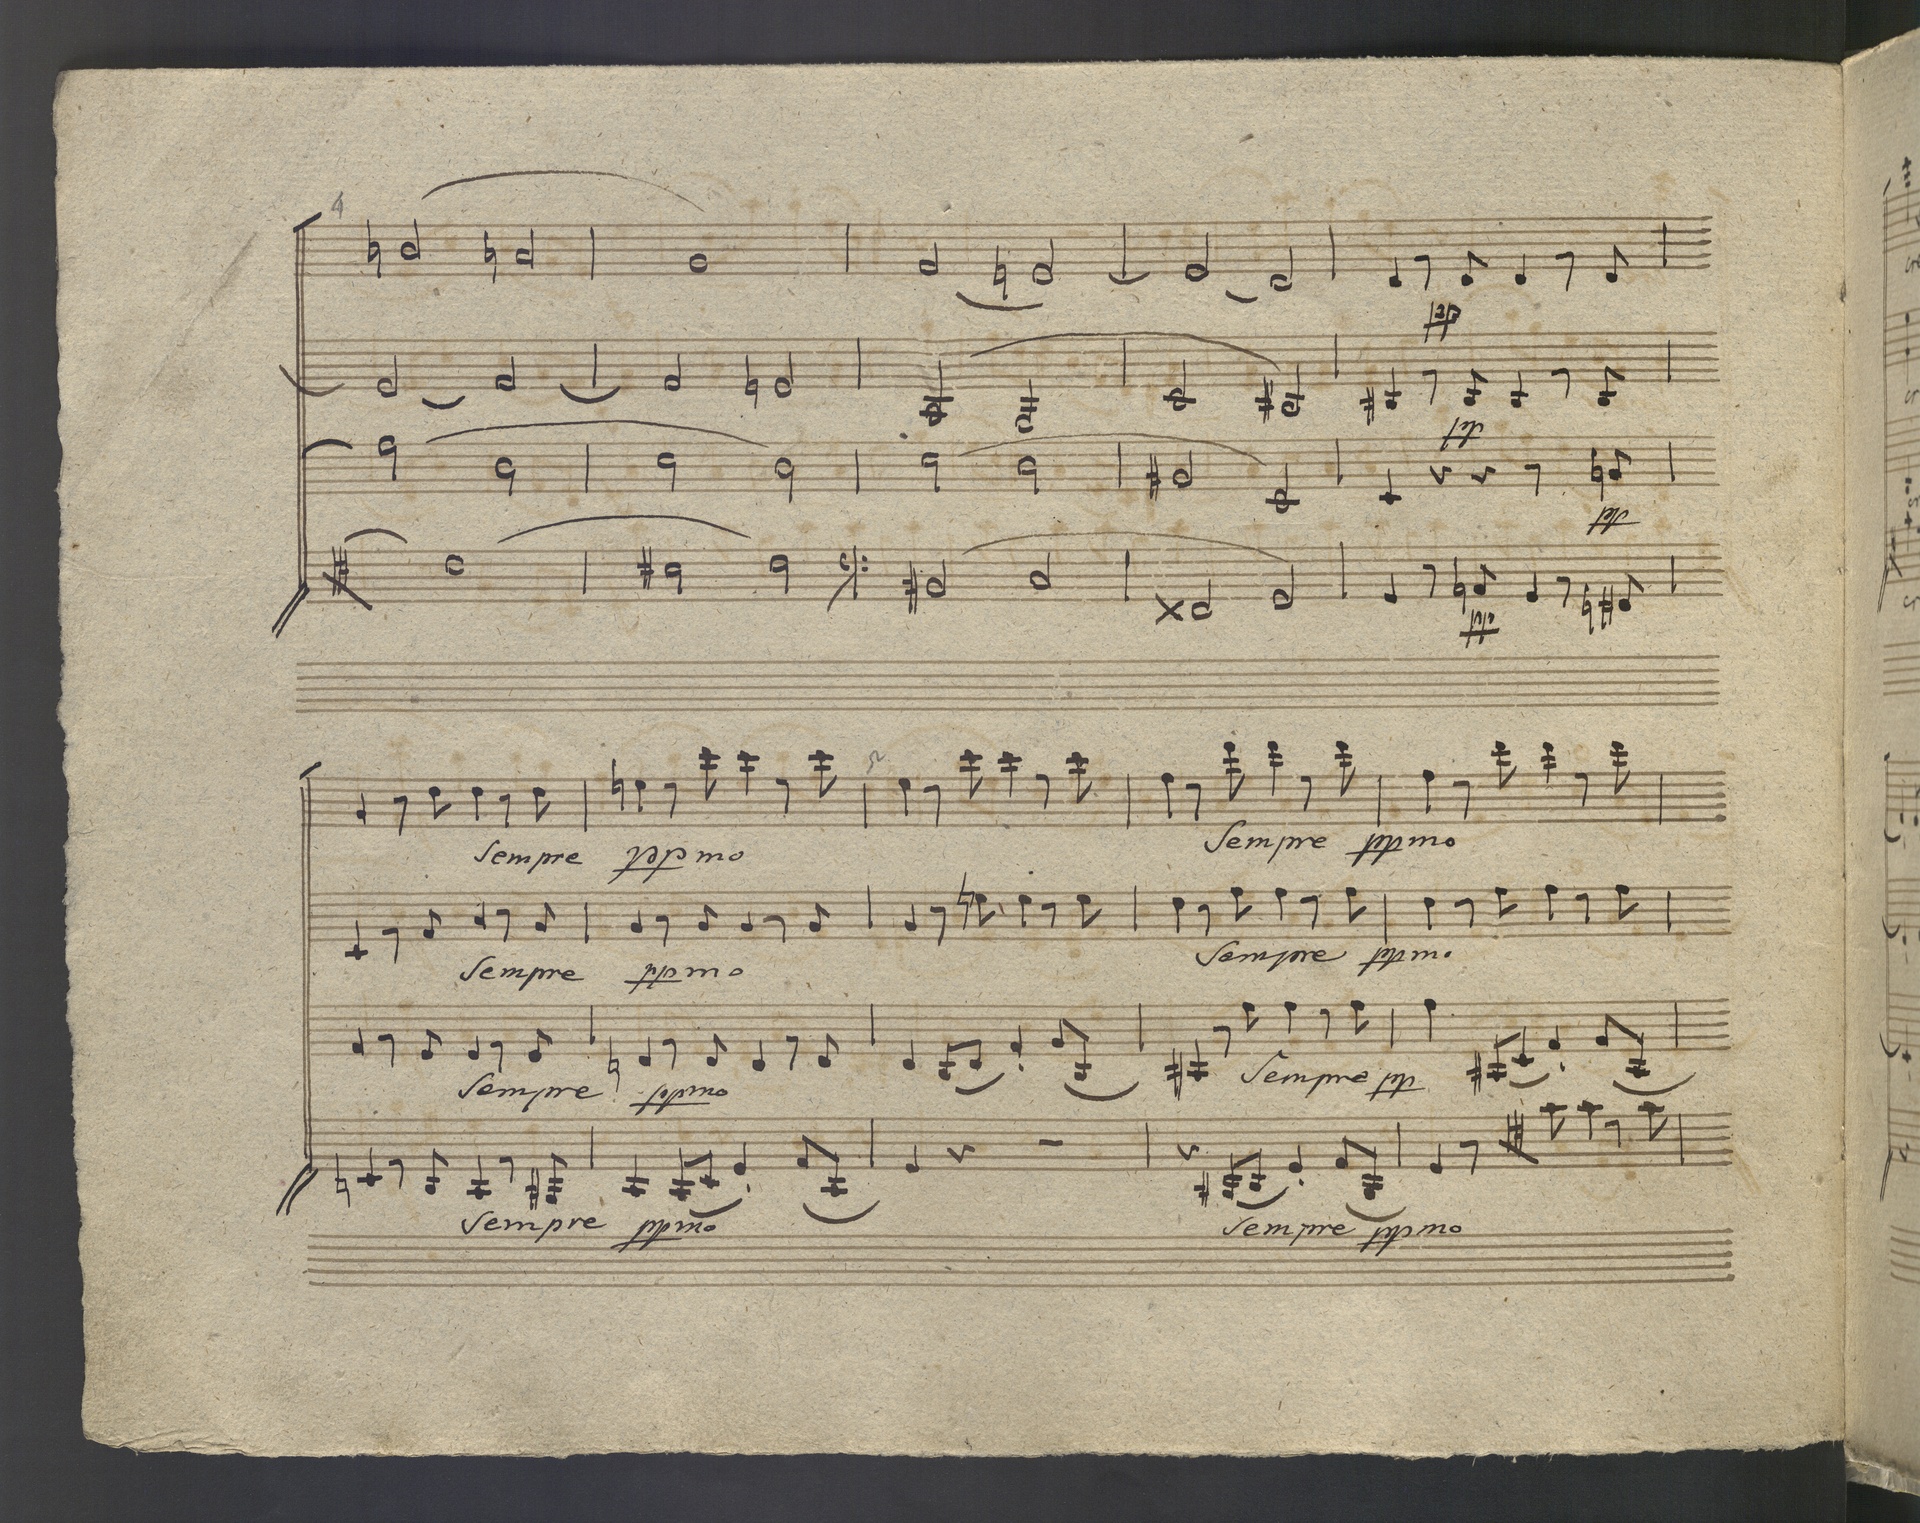 4
pp
pp
pp
pp
Sempre ppmo Sempre ppmo
Sempre ppmo Sempre ppmo
Sempre ppmo Sempre pp
Sempre ppmo Sempre ppmo